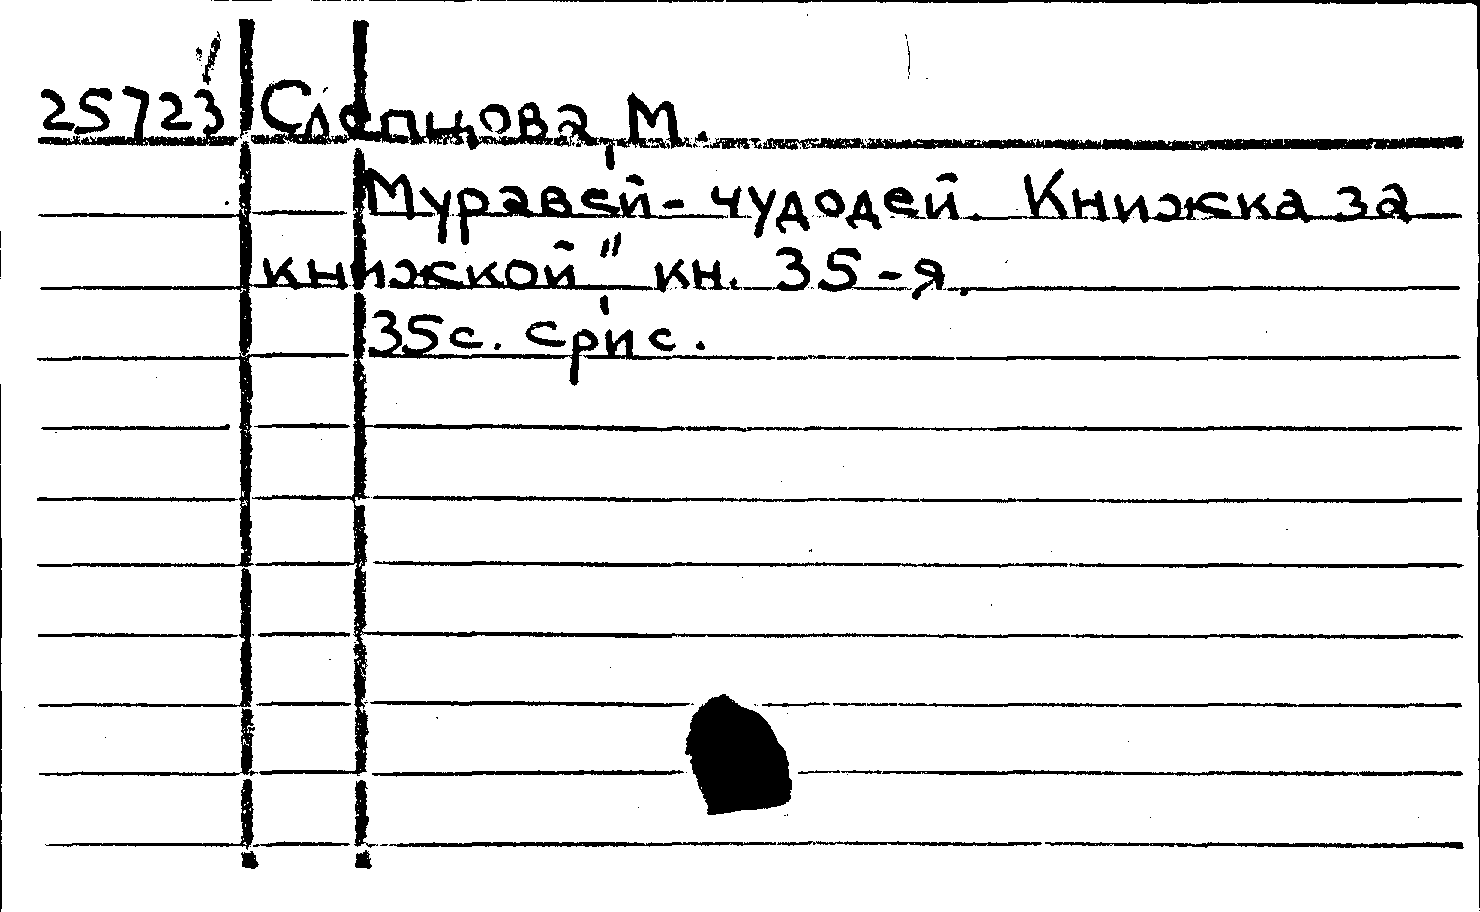 25723 Слепцова М.
Муравей-чудодей. Книжка за
книжкой" кн. 35-я.
35с. срис.